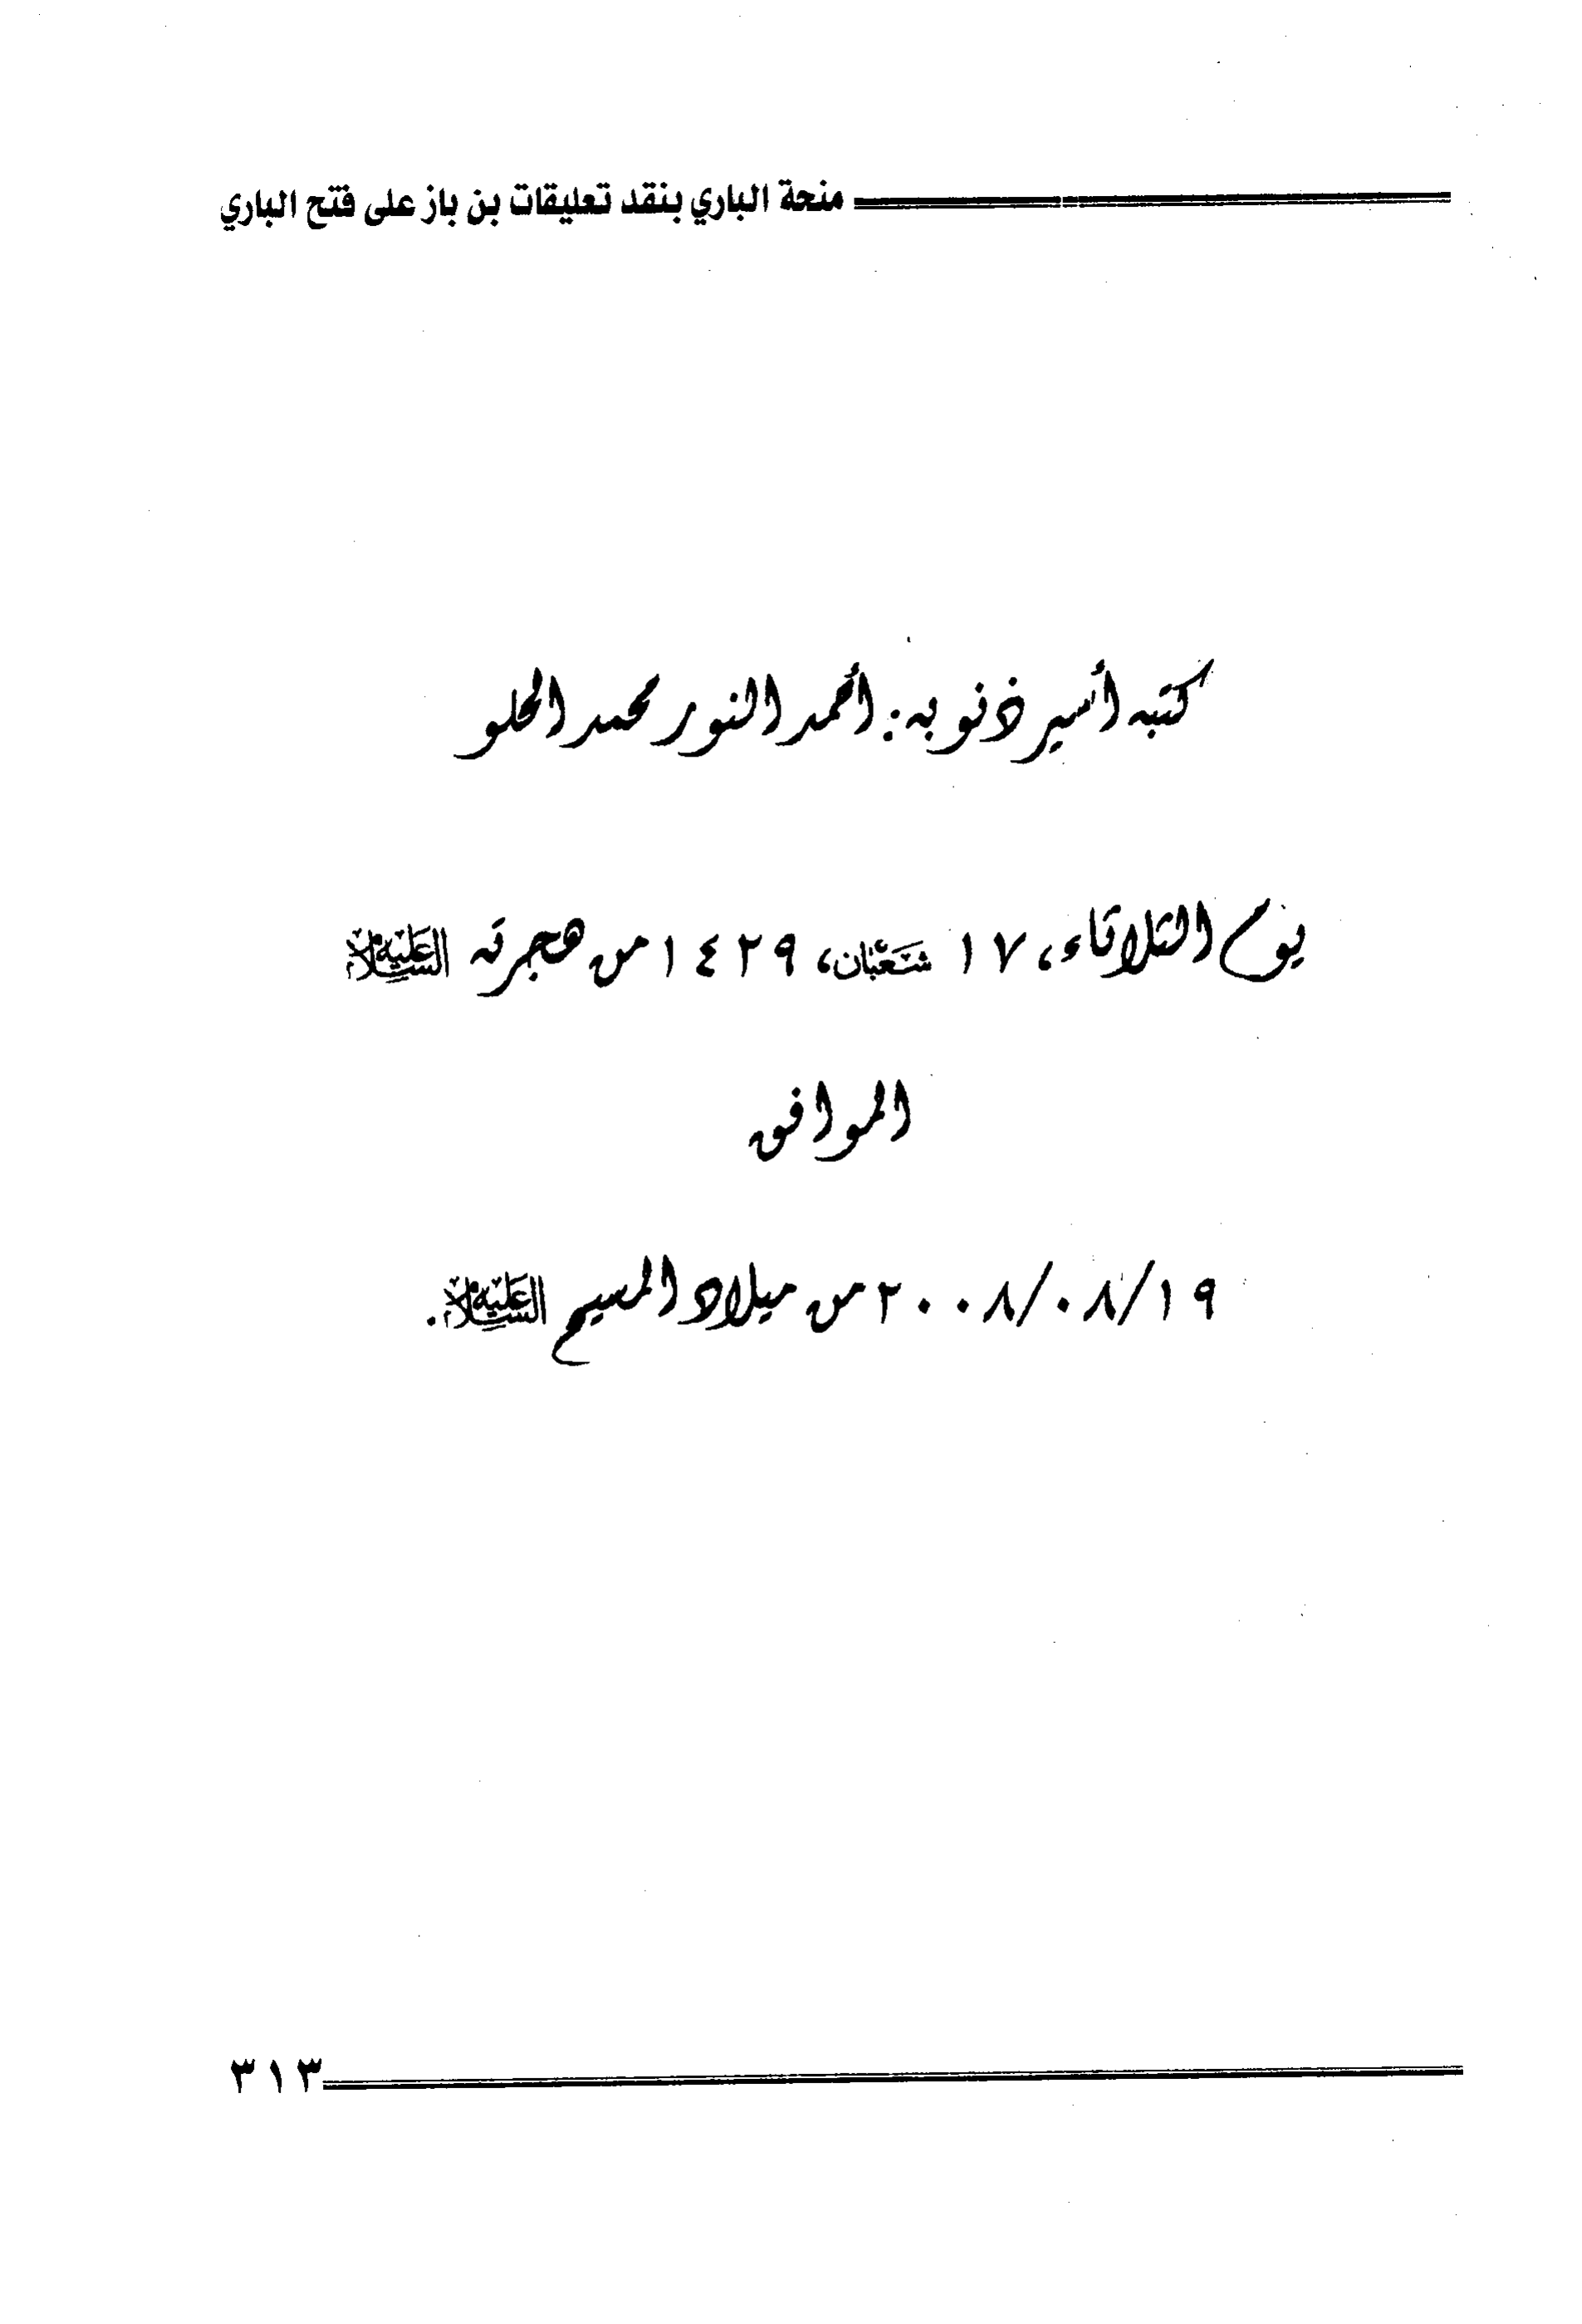 منحة الباري بنقد تعليقات بن باز على فتح الباري
كتبه أسير ذنوبه: أحمد النور محمد الحلو
يوم الثلاثاء، ١٧ شَعْبَان، ١٤٢٩ من هجرته عَلَيْهِ السَّلَام
الموافق
٢٠٠٨/٠٨/١٩ من ميلاد المسيح عَلَيْهِ السَّلَام.
٣١٣